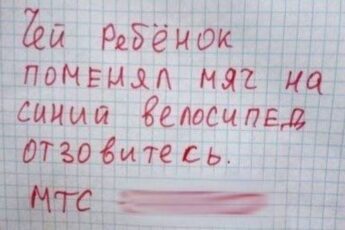 Чей ребёнок
поменял мяч на
синий велосипед
отзовитесь.
МТС